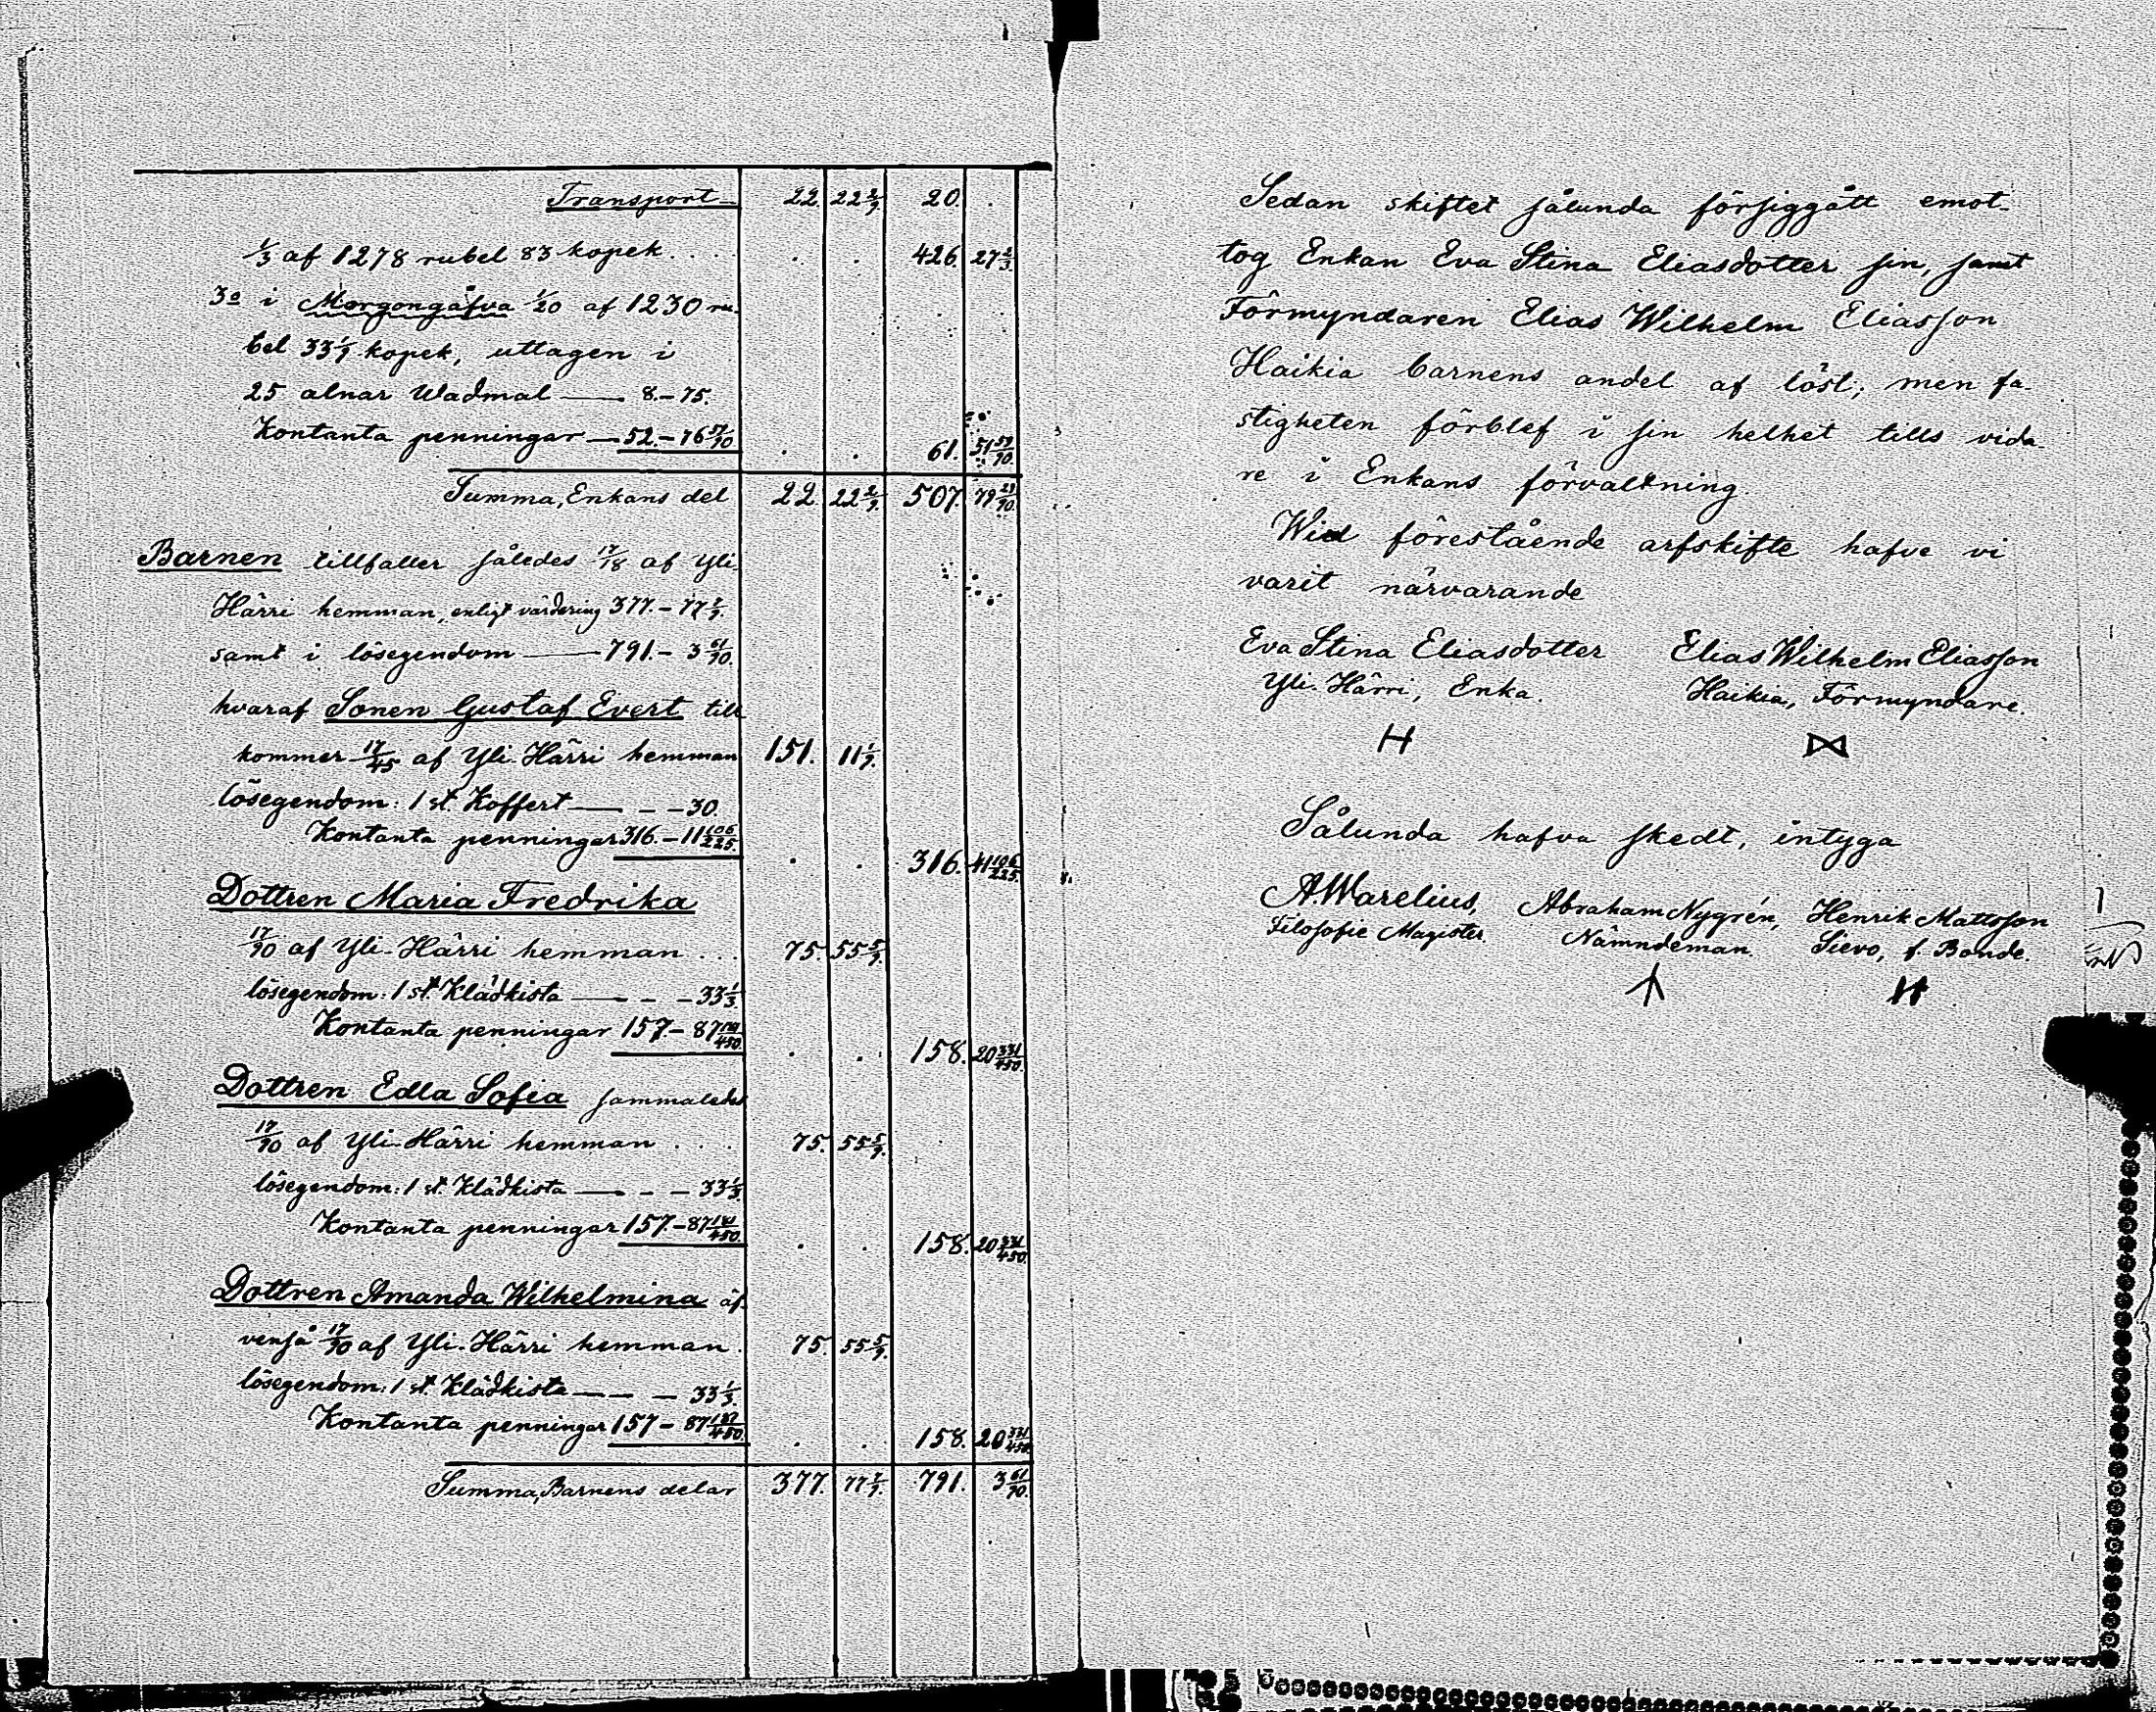 Transport 22. 22 2/9. 20. .
1/3 af 1278 rubel 83 kopek . . . . . . 426 27 2/3.
3o i Morgongåfva 1/20 af 1230 ru-
bel 33 1/9 kopek, uttagen i
25 alnar Wadmal — 8.-75.
Kontanta penningar — 52.-76 59/90 . . 61. 51 59/90.
Summa, Enkans del 22. 22 2/9. 507. 79 29/90.
Barnen tillfaller således 17/18 af Yli-
Härri hemman, enligt värdering 377.-77 7/9.
samt i lösegendom — 791.- 3 61/90.
hvaraf Sonen Gustaf Evert till
kommer 17/45 af Yli-Härri hemman 151. 11 1/9.
lösegendom: 1 st. Koffert — - - 30.
Kontanta penningar 316.-11 106/225. . . 316. 41 106/225.
Dottren Maria Fredrika
17/90 af Yli-Härri hemman . . . 75. 55 5/9.
lösegendom: 1 st. Klädkista — - - 33 1/3.
Kontanta penningar 157.-87 181/450. . . 158. 20 331/450.
Dottren Edla Sofia sammaledes
17/90 af Yli-Härri hemman . . . . 75. 55 5/9.
lösegendom: 1 st. Klädkista — - - 33 1/3
Kontanta penningar 157.-87 181/450. . . 158. 20 331/450.
Dottren Amanda Wilhelmina äf-
venså 17/90 af Yli-Härri hemman. 75. 55 5/9.
lösegendom: 1 st. Klädkista — - - 33 1/3.
Kontanta penningar 157.-87 181/450. . . 158. 20 331/450.
Summa, Barnens delar 377. 77 7/9. 791. 3 61/90.
Sedan skiftet sålunda försiggått emot-
tog Enkan Eva Stina Eliasdotter sin, samt
Förmyndaren Elias Wilhelm Eliasson
Haikia barnens andel af löst; men fa-
stigheten förblef i sin helhet tills vida-
re i Enkans förvaltning.
Wid förestående arfskifte hafve vi
varit närvarande
Eva Stina Eliasdotter Elias Wilhelm Eliasson
Yli-Härri, Enka. Haikia, Förmyndare.
Sålunda hafva skedt, intyga
A. Warelius, Abraham Nygrén, Henrik Mattsson
Filosofie Magister. Nämndeman. Sievo, f. Bonde.